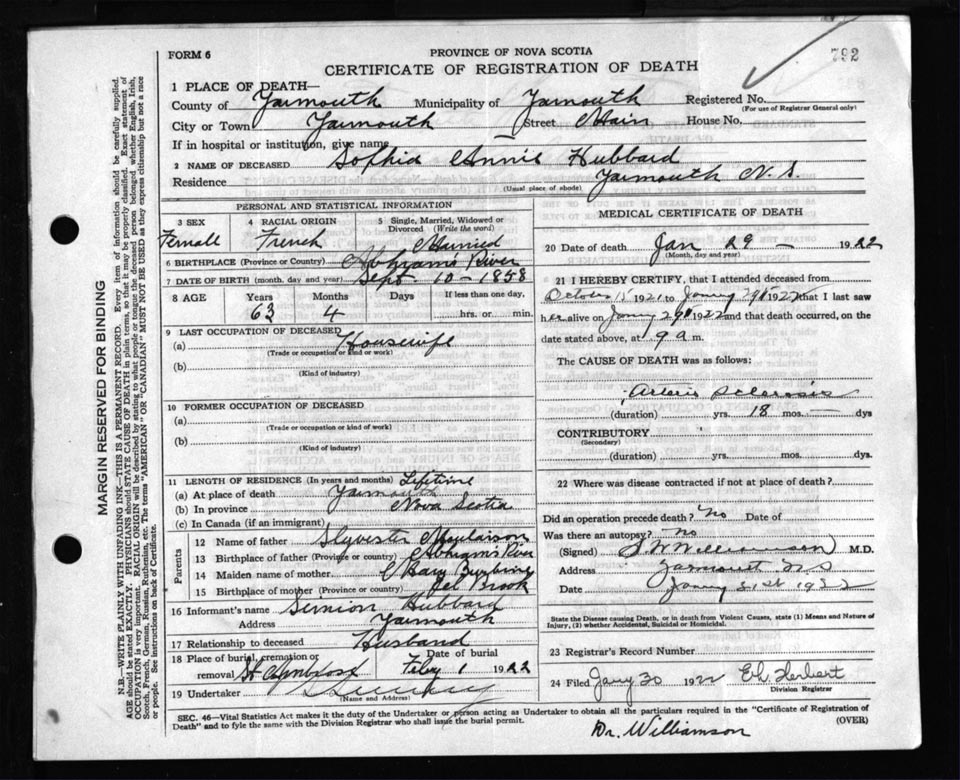 792
FORM 6
PROVINCE OF NOVA SCOTIA
CERTIFICATE OF REGISTRATION OF DEATH
1 PLACE OF DEATH—
County of Yarmouth Municipality of Yarmouth Registered No.
(For use of Registrar General only)
City or Town Yarmouth Street Main House No.
If in hospital or institution, give name
2 NAME OF DECEASED Sophia Annie Hubbard
Residence Yarmouth N.S.
(Usual place of abode)
PERSONAL AND STATISTICAL INFORMATION
3 SEX 4 RACIAL ORIGIN 5 Single, Married, Widowed or Divorced (Write the word)
Female French Married
6 BIRTHPLACE (Province or Country) Abrham's River
7 DATE OF BIRTH (month, day and year) Sept. 10-1858
8 AGE Years Months Days If less than one day,
63 4 hrs. or min.
9 LAST OCCUPATION OF DECEASED
(a) Housewife
(Trade or occupation or kind or work)
(b)
(Kind of industry)
10 FORMER OCCUPATION OF DECEASED
(a)
(Trade or occupation or kind of work)
(b)
(Kind of industry)
11 LENGTH OF RESIDENCE (In years and months) Lifetime
(a) At place of death Yarmouth
(b) In province Nova Scotia
(c) In Canada (if an immigrant)
Parents
12 Name of father Slyvester
13 Birthplace of father (Province or country) Abhram's River
14 Maiden name of mother Mary
15 Birthplace of mother (Province or country) Eel Brook
16 Informant's name Simion Hubbard
Address Yarmouth
17 Relationship to deceased Husband
18 Place of burial, cremation or removal Date of burial
St Ambrose Feby 1 1922
19 Undertaker
(Name and Address)
MEDICAL CERTIFICATE OF DEATH
20 Date of death Jan 29 — 1922
(Month, day and year)
21 I HEREBY CERTIFY, that I attended deceased from
October 15 1921 to Janry 29th 1922 that I last saw
her alive on Janry 29th 1922 and that death occurred, on
date stated above, at 9 a m.
The CAUSE OF DEATH was as follows:
Arterio Sclerosis
(duration) yrs. 18 mos. — dys
CONTRIBUTORY
(Secondary)
(duration) yrs. mos. dys.
22 Where was disease contracted if not at place of death?
Did an operation precede death? No Date of
Was there an autopsy? No
(Signed) Williamson M.D.
Address Yarmouth N S
Date Janry 31st 1922
State the Disease causing Death, or in death from Violent Causes, state (1) Means and Nature of
Injury, (2) whether Accidental, Suicidal or Homicidal.
23 Registrar's Record Number
24 Filed Jany 30 1922 Herbert
Division Registrar
SEC. 46—Vital Statistics Act makes it the duty of the Undertaker or person acting as Undertaker to obtain all the particulars required in the "Certificate of Registration of
Death" and to fyle the same with the Division Registrar who shall issue the burial permit.
(OVER)
Dr. Williamson
MARGIN RESERVED FOR BINDING
N.B.—WRITE PLAINLY WITH UNFADING INK—THIS IS A PERMANENT RECORD. Every item of information should be carefully supplied.
AGE should be stated EXACTLY. PHYSICIANS should STATE CAUSE OF DEATH in plain terms, so that it may be properly classified. Exact statement of
OCCUPATION is very important. RACIAL ORIGIN will be described by stating to what people or tongue the deceased person belonged whether English, Irish,
Scotch, French, German, Russian, Ruthenian, etc. The terms "AMERICAN" or "CANADIAN" MUST NOT BE USED as they express citizenship but not a race
or people. See instructions on back of Certificate.